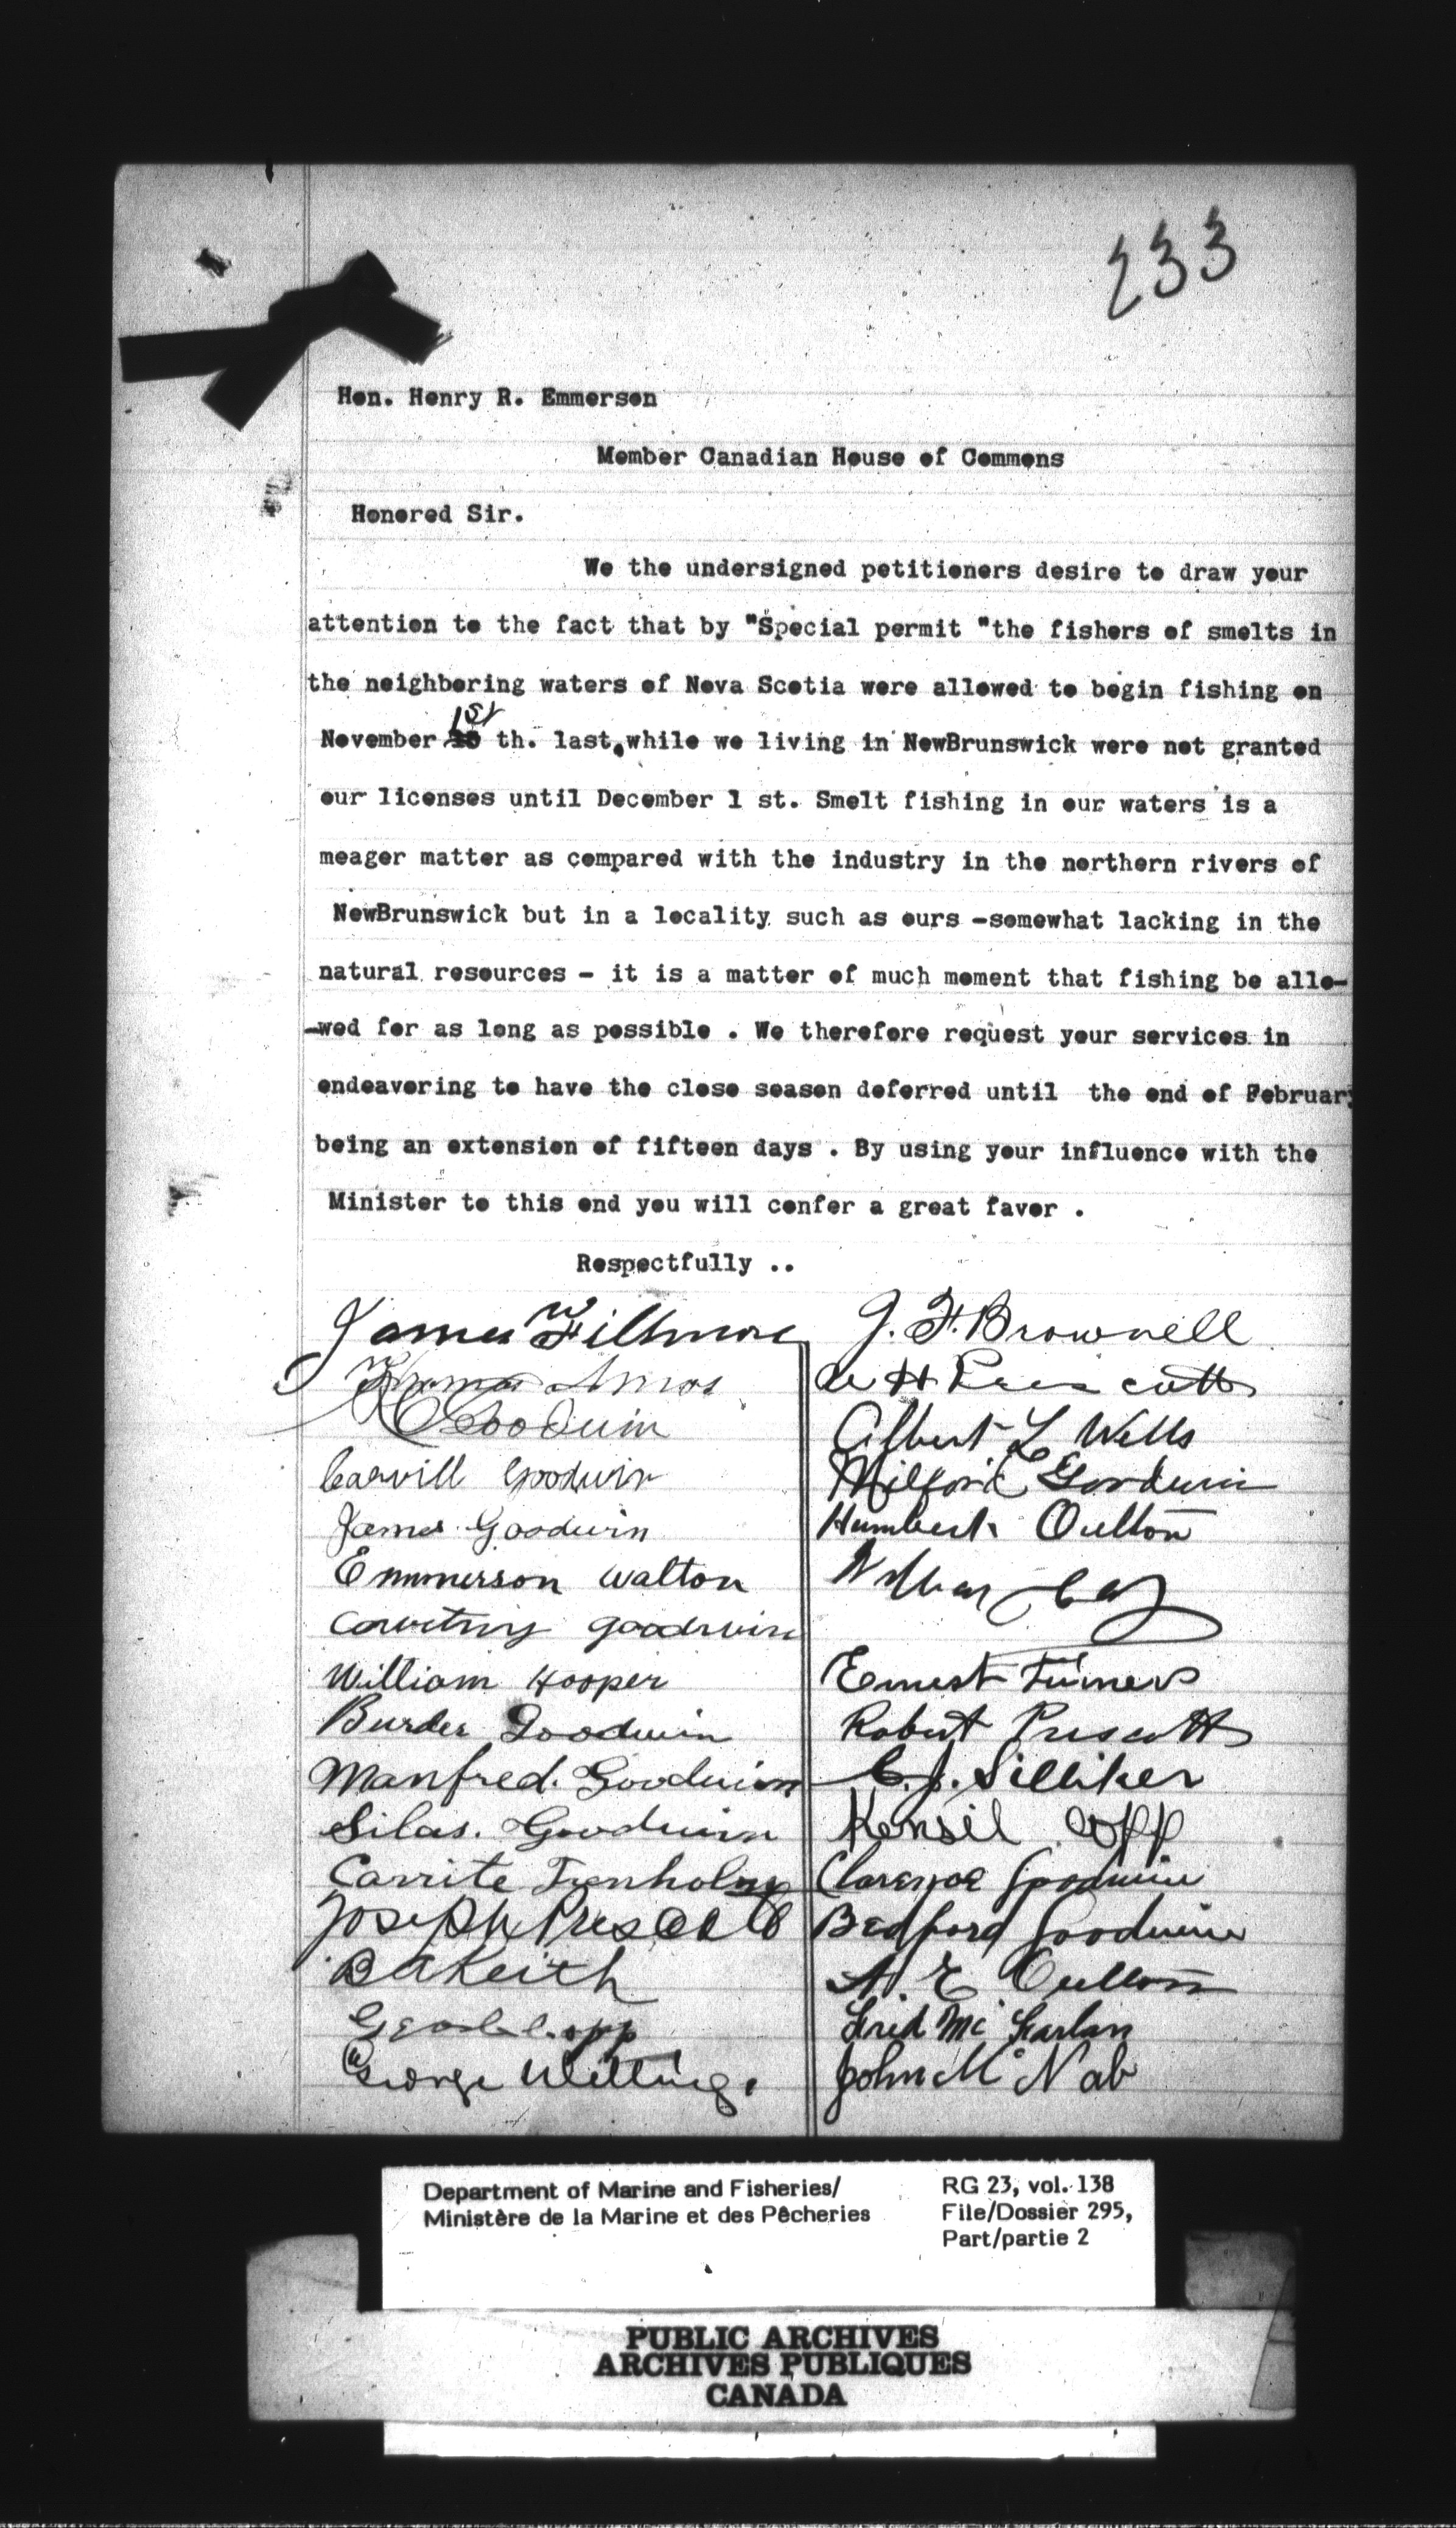 233
Hon. Henry R. Emmerson
Member Canadian House of Commons
Honored Sir.
We the undersigned petitioners desire to draw your
attention to the fact that by "Special permit "the fishers of smelts in
the neighboring waters of Nova Scotia were allowed to begin fishing on
1st
November th. last, while we living in NewBrunswick were not granted
our licenses until December 1 st. Smelt fishing in our waters is a
meager matter as compared with the industry in the northern rivers of
NewBrunswick but in a locality such as ours -somewhat lacking in the
natural resources - it is a matter of much moment that fishing be allo-
-wed for as long as possible . We therefore request your services in
endeavoring to have the close season deferred until the end of February
being an extension of fifteen days . By using your influence with the
Minister to this end you will confer a great favor .
Respectfully ..
James W Fillmore
Thomas Amos
Goodwin
Carvill Goodwin
James Goodwin
Emmerson Walton
Courtney Goodwin
William Hooper
Burder Goodwin
Manfred. Goodwin
Silas. Goodwin
Carrite Trenholm
Joseph Prescott
B A Keith
Copp
George Welling.
J. F. Brownell
H Prescott
Albert L Wells
Milford Goodwin
Humbert Oulton
Ernest Turner
Robert Prescott
C. J. Silliker
Kensil Copp
Clarence Goodwin
Bedford Goodwin
A. E Oulton
Fred Mc Farlan
John Mc Nab
Department of Marine and Fisheries/
Ministère de la Marine et des Pêcheries
RG 23, vol. 138
File/Dossier 295,
Part/partie 2
PUBLIC ARCHIVES
ARCHIVES PUBLIQUES
CANADA